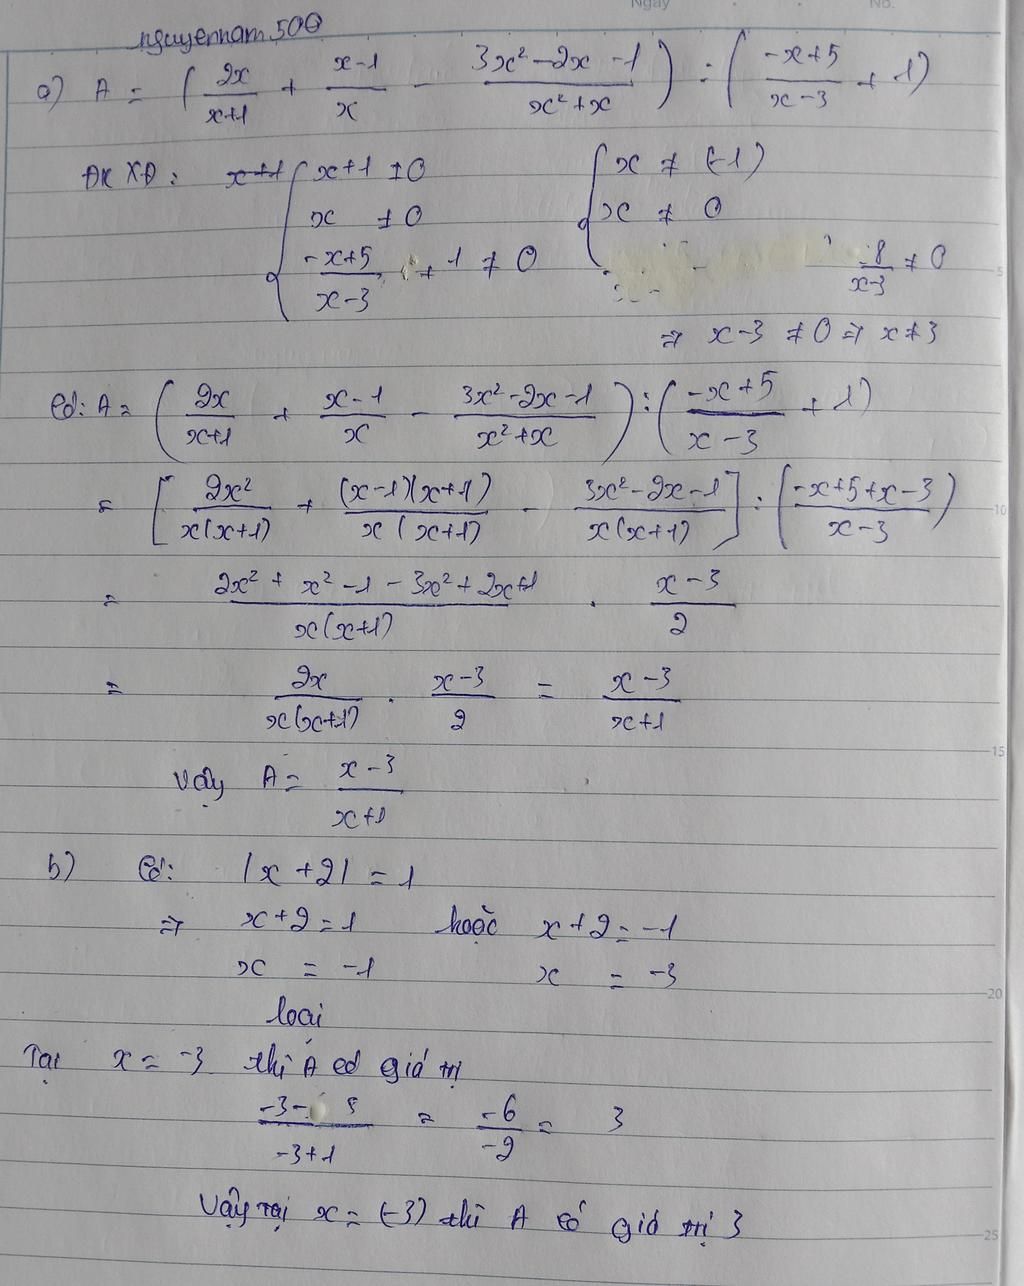 Ngày No.
nguyennam500
a) A = (2x/x+1 + x-1/x - 3x²-2x-1/x²+x) : (-x+5/x-3 + 1)
ĐKXĐ: x+1 { x+1 ≠ 0 { x ≠ (-1)
x ≠ 0 x ≠ 0
-x+5/x-3 + 1 ≠ 0 -8/x-3 ≠ 0
⇒ x-3 ≠ 0 ⇒ x ≠ 3
Có: A = (2x/x+1 + x-1/x - 3x²-2x-1/x²+x) : (-x+5/x-3 + 1)
= [2x²/x(x+1) + (x-1)(x+1)/x(x+1) - 3x²-2x-1/x(x+1)] : (-x+5+x-3/x-3)
= 2x²+x²-1-3x²+2x+1/x(x+1) . x-3/2
= 2x/x(x+1) . x-3/2 = x-3/x+1
Vậy A = x-3/x+1
b) Có: |x+2| = 1
⇒ x+2 = 1 hoặc x+2 = -1
x = -1 x = -3
loại
Tại x = -3 thì A có giá trị
-3- /-3+1 = -6/-2 = 3
Vậy tại x = (-3) thì A có giá trị 3
5
10
15
20
25